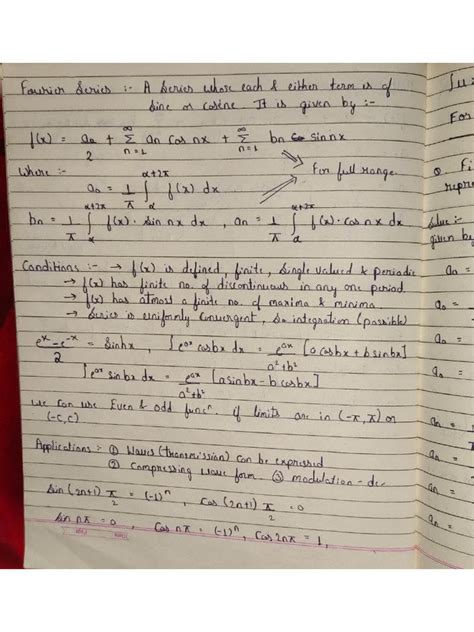 Fourier Series :- A Series whose each & either term is of
Sine or Cosine. It is given by :-
f(x) = a₀/2 + ∞Σn=1 an cos nx + ∞Σn=1 bn sin nx
where :- For full range
a₀ = 1/π ∫α^α+2π f(x) dx
bn = 1/π ∫α^α+2π f(x). sin nx dx, an = 1/π ∫α^α+2π f(x). cos nx dx
Conditions :- → f(x) is defined, finite, single valued & periodic
→ f(x) has finite no. of discontinuous in any one period.
→ f(x) has atmost a finite no. of maxima & minima
→ Series is uniformly convergent, so integration (possible)
eˣ - e⁻ˣ/2 = sinhx, ∫eᵃˣ cosbx dx = eᵃˣ/a²+b² [a cosbx + b sinbx]
∫eᵃˣ sinbx dx = eᵃˣ/a²+b² [a sinbx - b cosbx]
We can use Even & odd funcⁿ. if limits are in (-π, π) or
(-c, c)
Applications :- ① Waves (transmission) can be expressed
② Compressing wave form ③ modulation - dec
Sin (2n+1) π/2 = (-1)ⁿ, Cos (2n+1) π/2 = 0
Sin nπ = 0, Cos nπ = (-1)ⁿ, Cos 2nπ = 1,
For
Q. Fi
repre
given by
a₀ =
a₀ =
a₀ =
a₀ =
an =
an =
an =